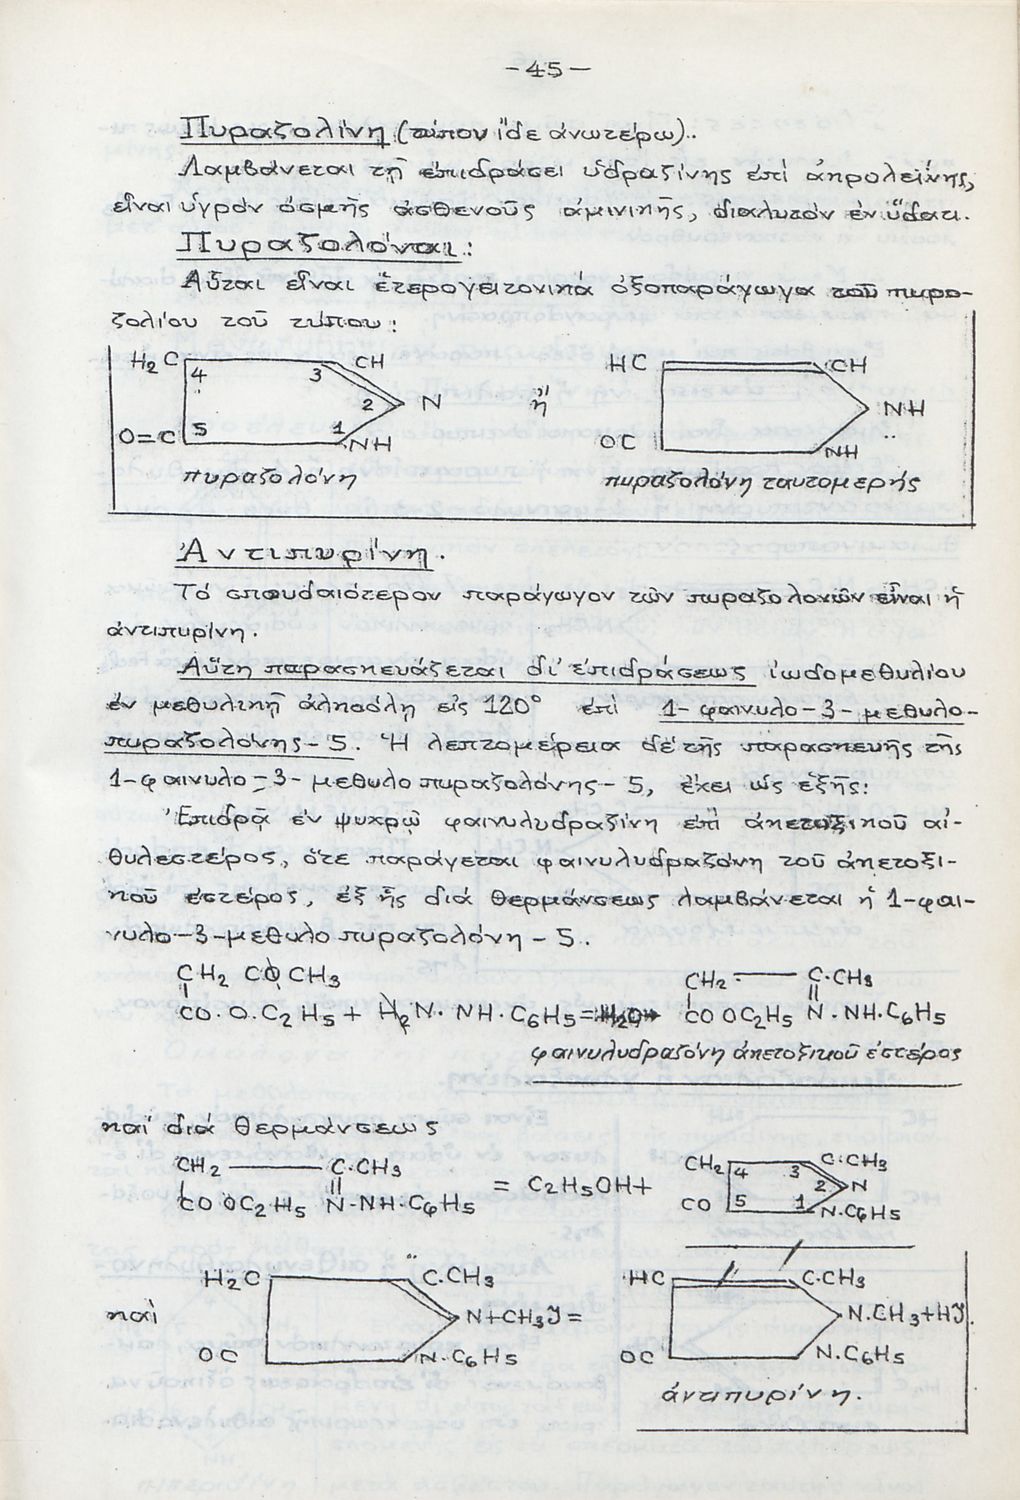 -45-
Πυραζολίνη (τύπον ἴδε ἀνωτέρω).
Λαμβάνεται τῇ ἐπιδράσει ὑδραζίνης ἐπί ἀκρολεΐνης,
εἶναι ὑγρόν ὀσμῆς ἀσθενοῦς ἀμινικῆς, διαλυτόν ἐν ὕδατι.
Πυραζολόναι:
Αὗται εἶναι ἑτερογειτονικά ὀξοπαράγωγα τοῦ πυρα-
ζολίου τοῦ τύπου:
H2C CH HC CH
4 3
2 N ἤ NH
O=C 5 1 NH OC NH
πυραζολόνη πυραζολόνη ταυτομερής
Ἀντιπυρίνη.
Τό σπουδαιότερον παράγωγον τῶν πυραζολονῶν εἶναι ἡ
ἀντιπυρίνη.
Αὕτη παρασκευάζεται δι' ἐπιδράσεως ἰωδομεθυλίου
ἐν μεθυλικῇ ἀλκοόλῃ εἰς 120° ἐπί 1-φαινυλο-3-μεθυλο-
πυραζολόνης-5. Ἡ λεπτομέρεια δέ τῆς παρασκευῆς τῆς
1-φαινυλο-3-μεθυλοπυραζολόνης-5, ἔχει ὡς ἑξῆς:
Ἐπιδρᾷ ἐν ψυχρῷ φαινυλυδραζίνη ἐπί ἀκετοξικοῦ αἰ-
θυλεστέρος, ὅτε παράγεται φαινυλυδραζόνη τοῦ ἀκετοξι-
κοῦ ἐστέρος, ἐξ ἧς διά θερμάνσεως λαμβάνεται ἡ 1-φαι-
νυλο-3-μεθυλοπυραζολόνη-5.
CH2 CO CH3 CH2 — C.CH3
CO.O.C2H5 + H2N.NH.C6H5 = H2O+ COOC2H5 N.NH.C6H5
φαινυλυδραζόνη ἀκετοξικοῦ ἐστέρος
καί διά θερμάνσεως
CH2 — C.CH3 CH2 4 3 C.CH3
= C2H5OH+ 2 N
COOC2H5 N-NH.C6H5 CO 5 1 N.C6H5
H2C C.CH3 HC C.CH3
καὶ N+CH3J = N.CH3+HJ.
OC N.C6H5 OC N.C6H5
ἀντιπυρίνη.